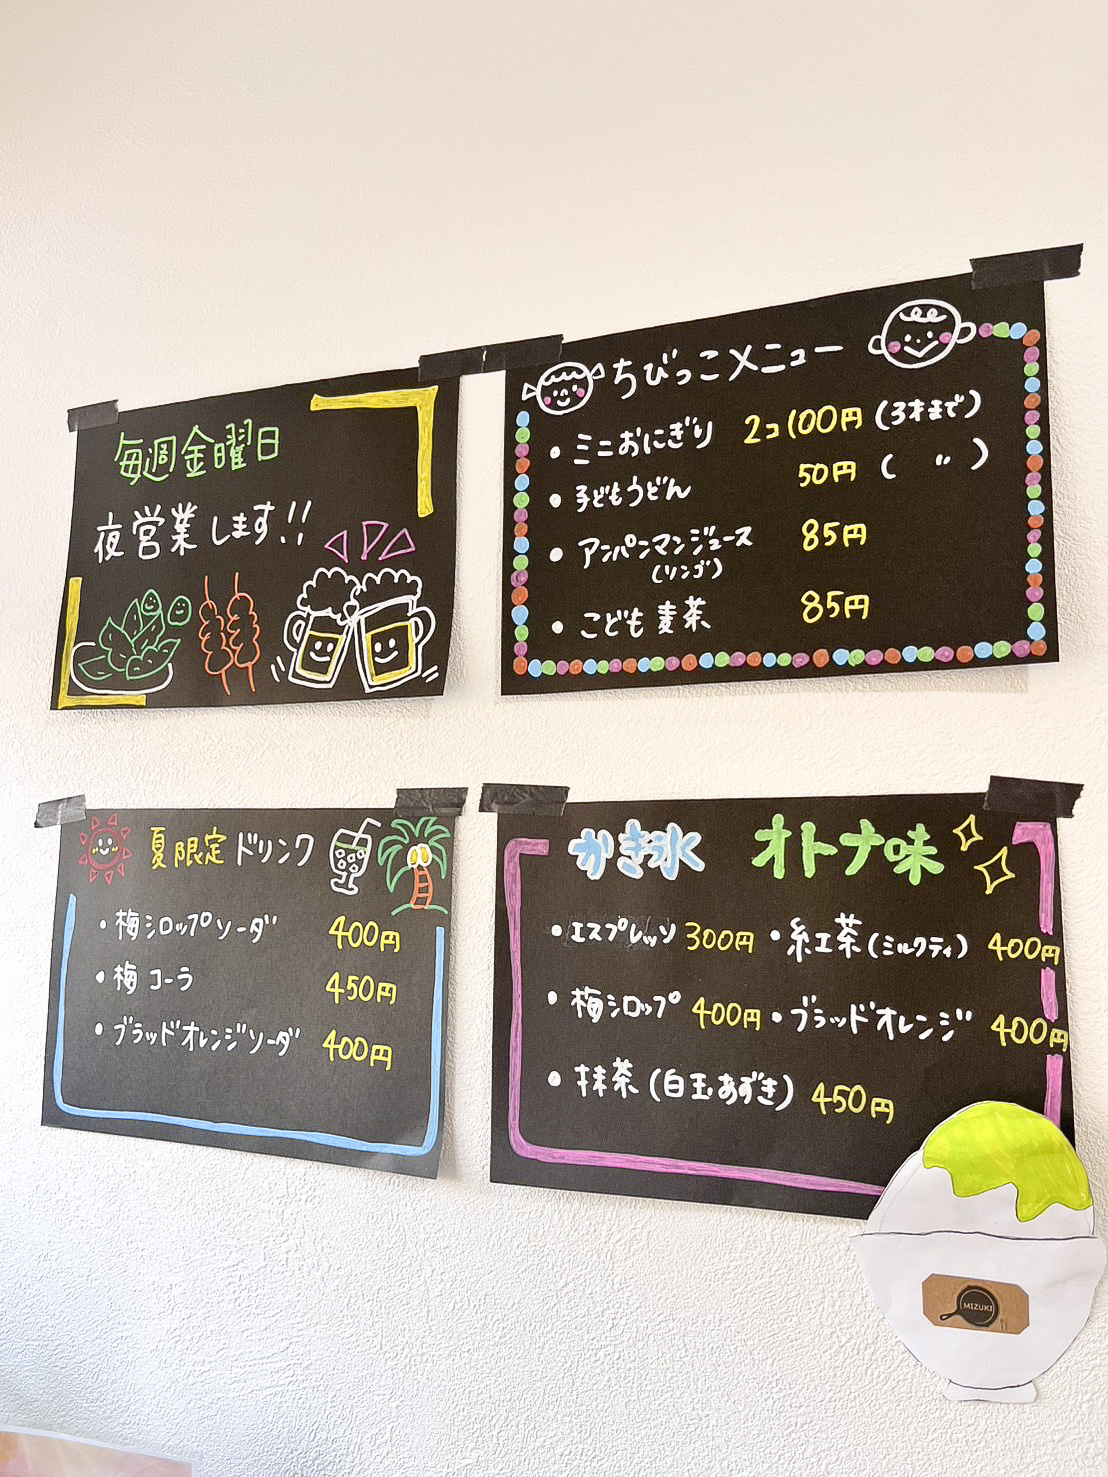 毎週金曜日
夜営業します!!
ちびっこメニュー
・ミニおにぎり 2コ100円(3才まで)
・子どもうどん 50円( 〃 )
・アンパンマンジュース 85円
(リンゴ)
・こども麦茶 85円
夏限定ドリンク
・梅シロップソーダ 400円
・梅コーラ 450円
・ブラッドオレンジソーダ 400円
かき氷 オトナ味
・エスプレッソ 300円 ・紅茶(ミルクティ) 400円
・梅シロップ 400円 ・ブラッドオレンジ 400円
・抹茶(白玉あずき) 450円
MIZUKI